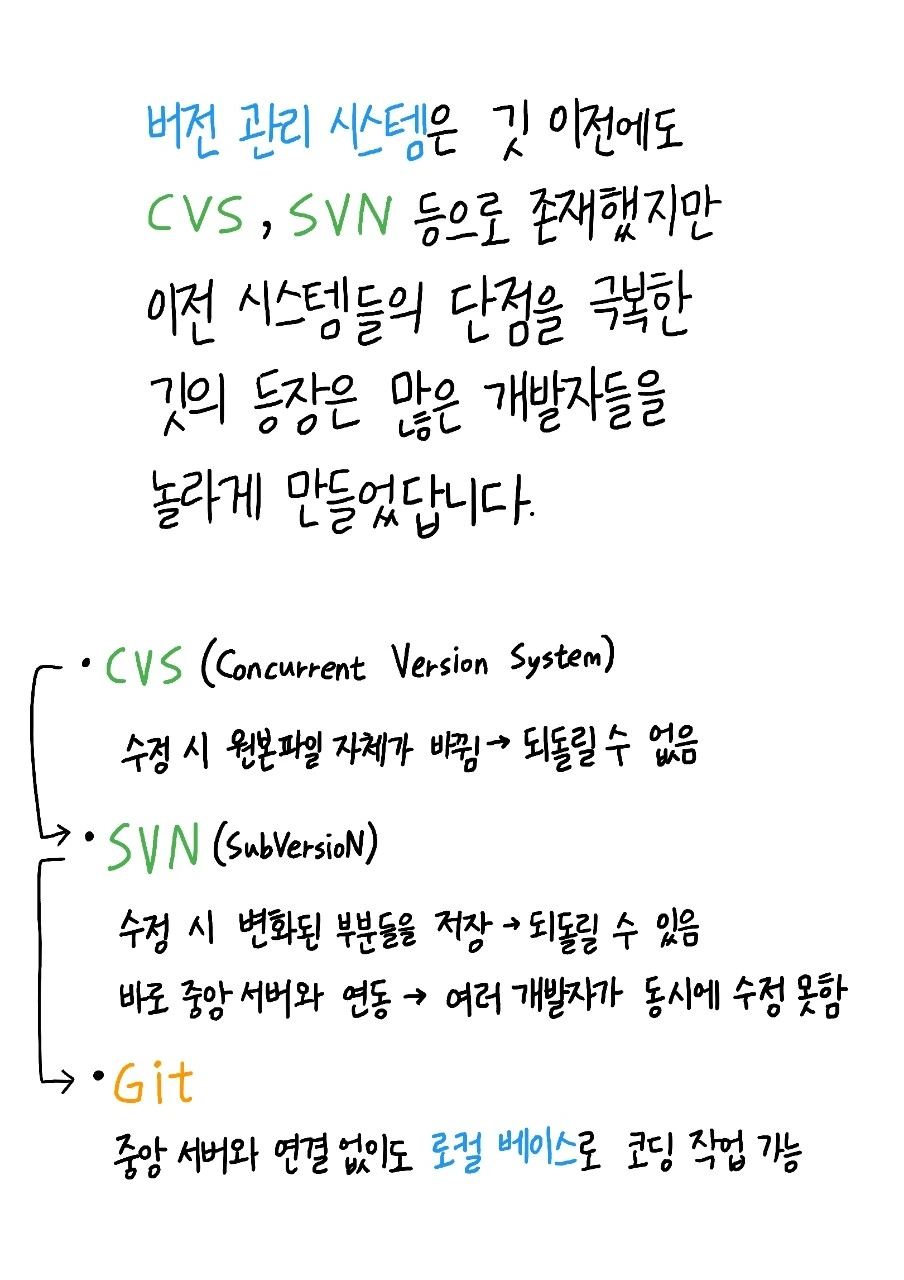 버전 관리 시스템은 깃 이전에도
CVS, SVN 등으로 존재했지만
이전 시스템들의 단점을 극복한
깃의 등장은 많은 개발자들을
놀라게 만들었답니다.
• CVS (Concurrent Version System)
수정 시 원본파일 자체가 바뀜 → 되돌릴 수 없음
• SVN (SubVersioN)
수정 시 변화된 부분들을 저장 → 되돌릴 수 있음
바로 중앙 서버와 연동 → 여러 개발자가 동시에 수정 못함
• Git
중앙 서버와 연결 없이도 로컬 베이스로 코딩 작업 가능